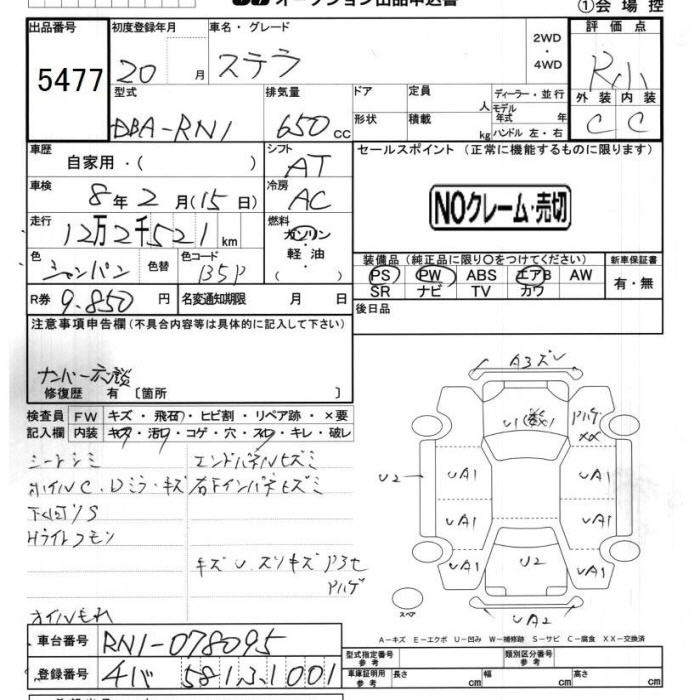 オークション出品申込書
①会場控
出品番号 初度登録年月 車名・グレード 2WD・4WD 評価点
5477 20 月 ステラ R小
型式 排気量 ドア 定員 人 ディーラー・並行 外装 内装
DBA-RN1 650 cc 形状 積載 kg モデル年式 年 ハンドル 左・右 C C
車歴 自家用・( ) シフト AT セールスポイント (正常に機能するものに限ります)
車検 8年2月(15日) 冷房 AC NOクレーム・売切
走行 12万2千521km 燃料 ガソリン・軽油・( )
色 シャンパン 色替 色コード B5P
装備品 (純正品に限り○をつけてください) 新車保証書
PS PW ABS エアB AW 有・無
SR ナビ TV カワ
R券 9.850円 名変通知期限 月 日 後日品
注意事項申告欄 (不具合内容等は具体的に記入して下さい)
修復歴 有 〔箇所 〕
検査員記入欄 FW キズ・飛石・ヒビ割・リペア跡・×要
内装 キズ・汚レ・コゲ・穴・スレ・キレ・破レ
シートシミ エンドパネルヒズミ
ホイルC.Dミラーキズ 右下インパネヒズミ
下回リS
Hライトクモリ
オイルモれ
A3ズレ
U2 UA1 UA1 UA1 UA1 UA1 UA1 U2
UA2
スペア
A-キズ E-エクボ U-凹み W-補修跡 S-サビ C-腐食 XX-交換済
車台番号 RN1-078095
型式指定番号 参考 類別区分番号 参考
登録番号
車庫証明用 参考 長さ cm 幅 cm 高さ cm